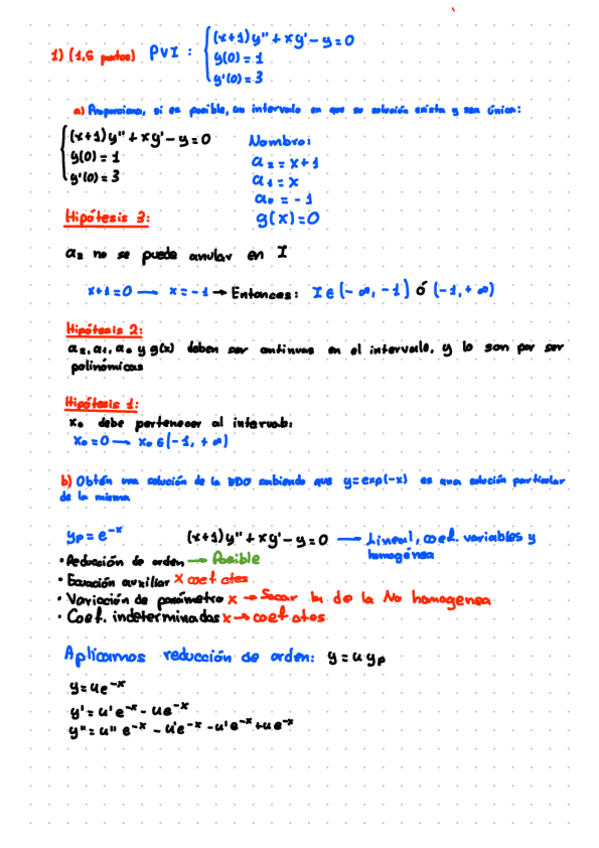 1) (1,5 puntos) PVI: { (x+1)y'' + xy' - y = 0
y(0) = 1
y'(0) = 3
a) Proporciona, si es posible, un intervalo en que su solución exista y sea única:
{ (x+1)y'' + xy' - y = 0
y(0) = 1
y'(0) = 3
Nombro:
a₂ = x+1
a₁ = x
a₀ = -1
g(x) = 0
Hipótesis 3:
a₂ no se puede anular en I
x+1=0 → x = -1 → Entonces: I ∈ (-∞, -1) ó (-1, +∞)
Hipótesis 2:
a₂, a₁, a₀ y g(x) deben ser continuas en el intervalo, y lo son por ser
polinómicas
Hipótesis 1:
x₀ debe pertenecer al intervalo:
x₀ = 0 → x₀ ∈ (-1, +∞)
b) Obtén una solución de la EDO sabiendo que y = exp(-x) es una solución particular
de la misma
yp = e^-x (x+1)y'' + xy' - y = 0 → Lineal, coef. variables y
homogénea
• Reducción de orden → Posible
• Ecuación auxiliar x coef ctes
• Variación de parámetro x → Sacar la de la No homogenea
• Coef. indeterminadas x → coef ctes
Aplicamos reducción de orden: y = u yp
y = ue^-x
y' = u'e^-x - ue^-x
y'' = u'' e^-x - u'e^-x - u'e^-x + ue^-x